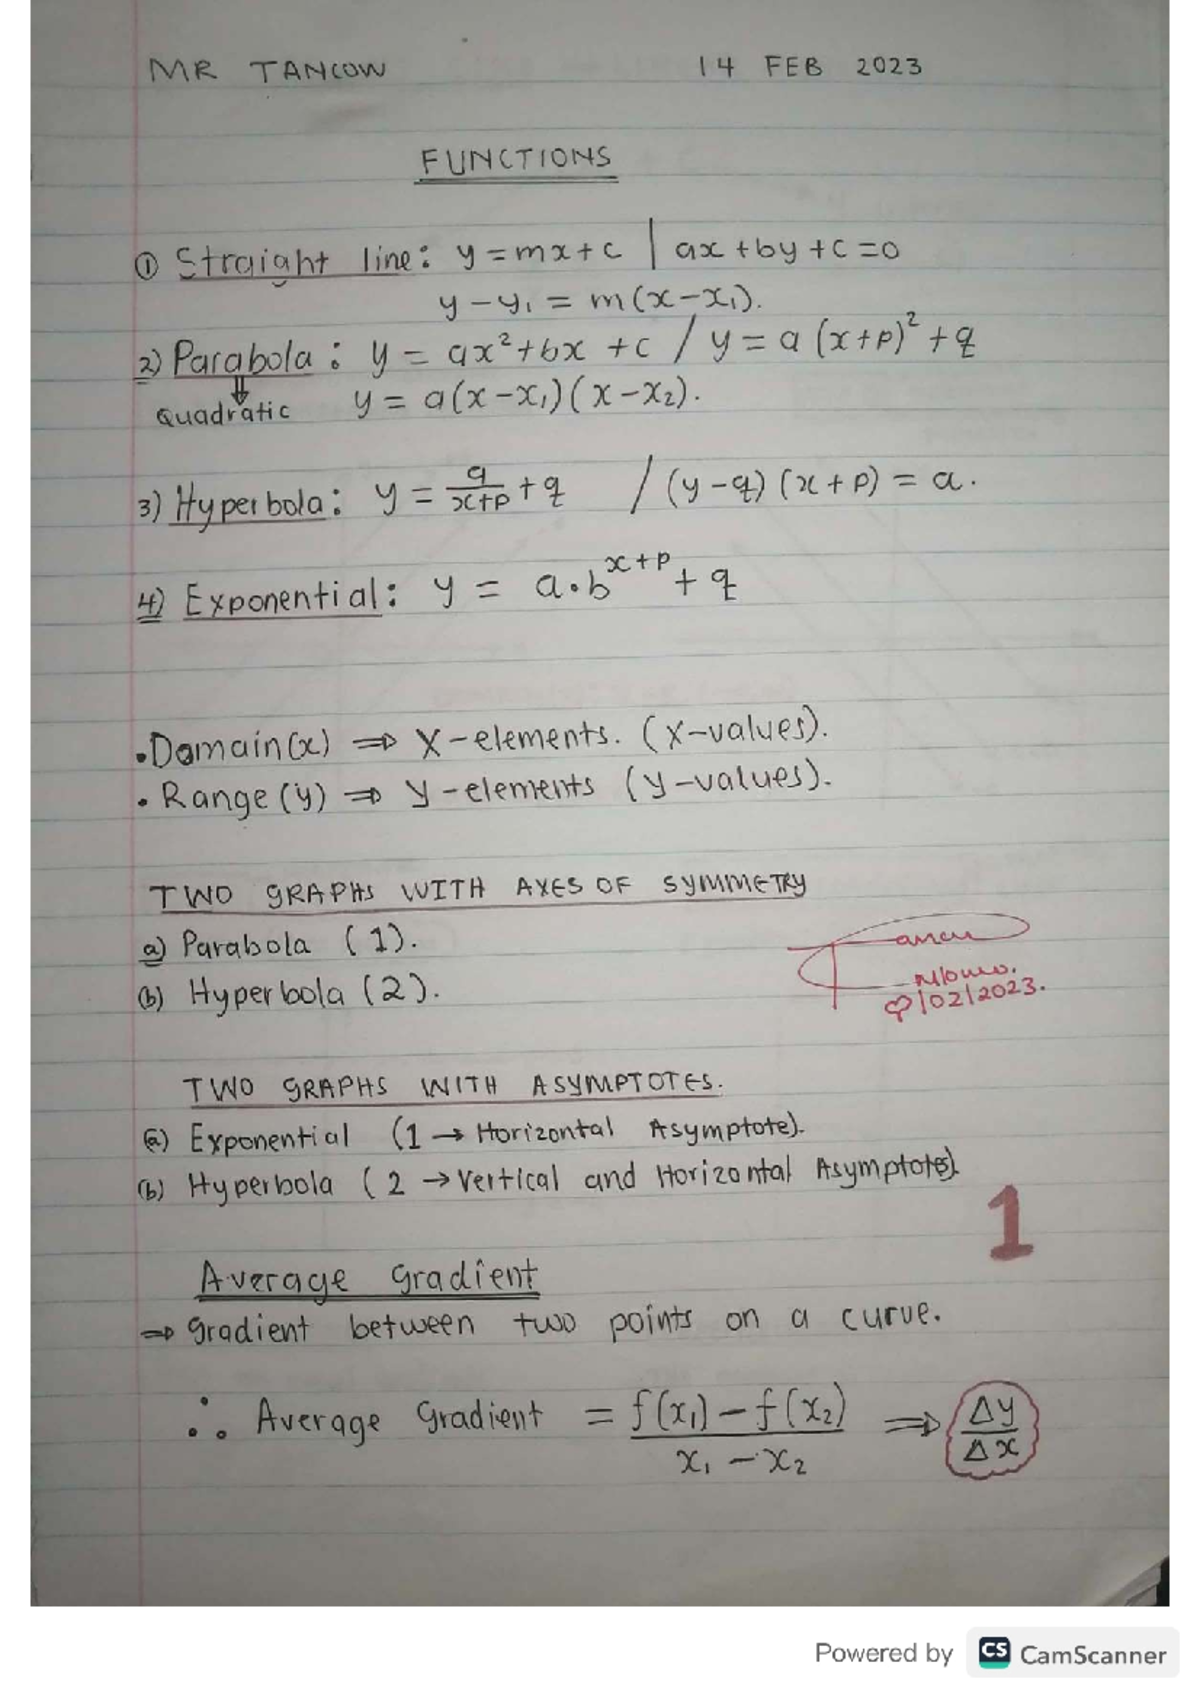 MR TANCOW 14 FEB 2023
FUNCTIONS
① Straight line: y = mx + c | ax + by + c = 0
y - y₁ = m(x - x₁).
2) Parabola: y = ax² + bx + c / y = a(x + p)² + q
⇓
Quadratic y = a(x - x₁)(x - x₂).
3) Hyperbola: y = a/(x+p) + q / (y - q)(x + p) = a.
4) Exponential: y = a·b^(x+p) + q
• Domain(x) ⇒ X-elements. (X-values).
• Range(y) ⇒ y-elements (y-values).
TWO GRAPHS WITH AXES OF SYMMETRY
a) Parabola (1).
(b) Hyperbola (2).
02/2023.
TWO GRAPHS WITH ASYMPTOTES.
(a) Exponential (1 → Horizontal Asymptote).
(b) Hyperbola (2 → Vertical and Horizontal Asymptotes).
1
Average Gradient
⇒ Gradient between two points on a curve.
∴ Average Gradient = f(x₁) - f(x₂) / x₁ - x₂ ⇒ Δy/Δx
Powered by CS CamScanner